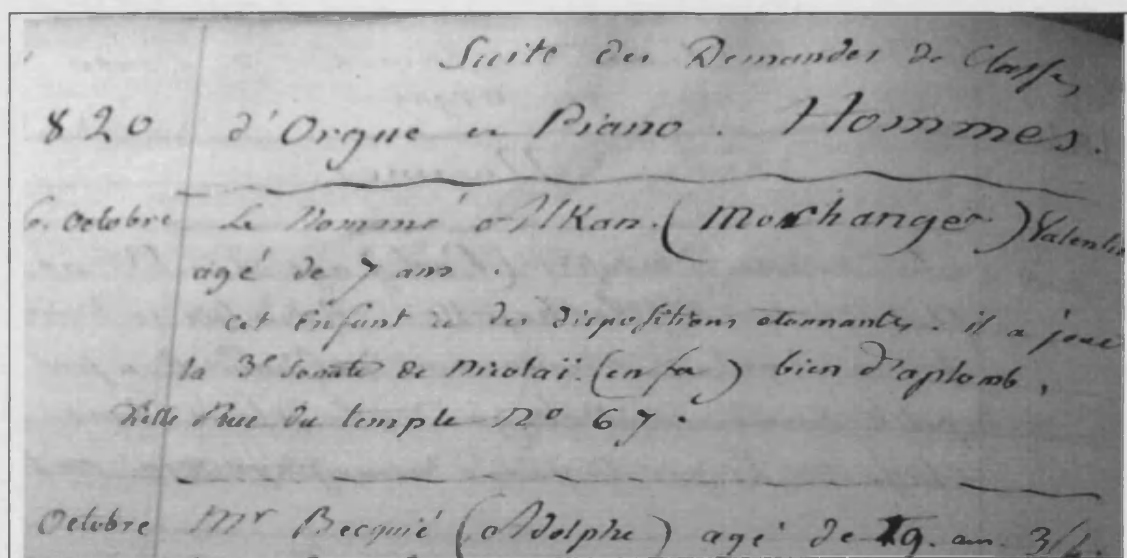 Suite des Demandes de Classes
820 d'Orgue et Piano. Hommes.
6. Octobre Le Nommé Alkan. (Morhange) Valentin
agé de 7 ans.
Cet Enfant a des dispositions etonnantes. il a joué
la 3e Sonate de Nicolaï. (en fa) bien d'aplomb.
Rue du temple No 67.
Octobre Mr Becquié (Adolphe) agé de 19. ans